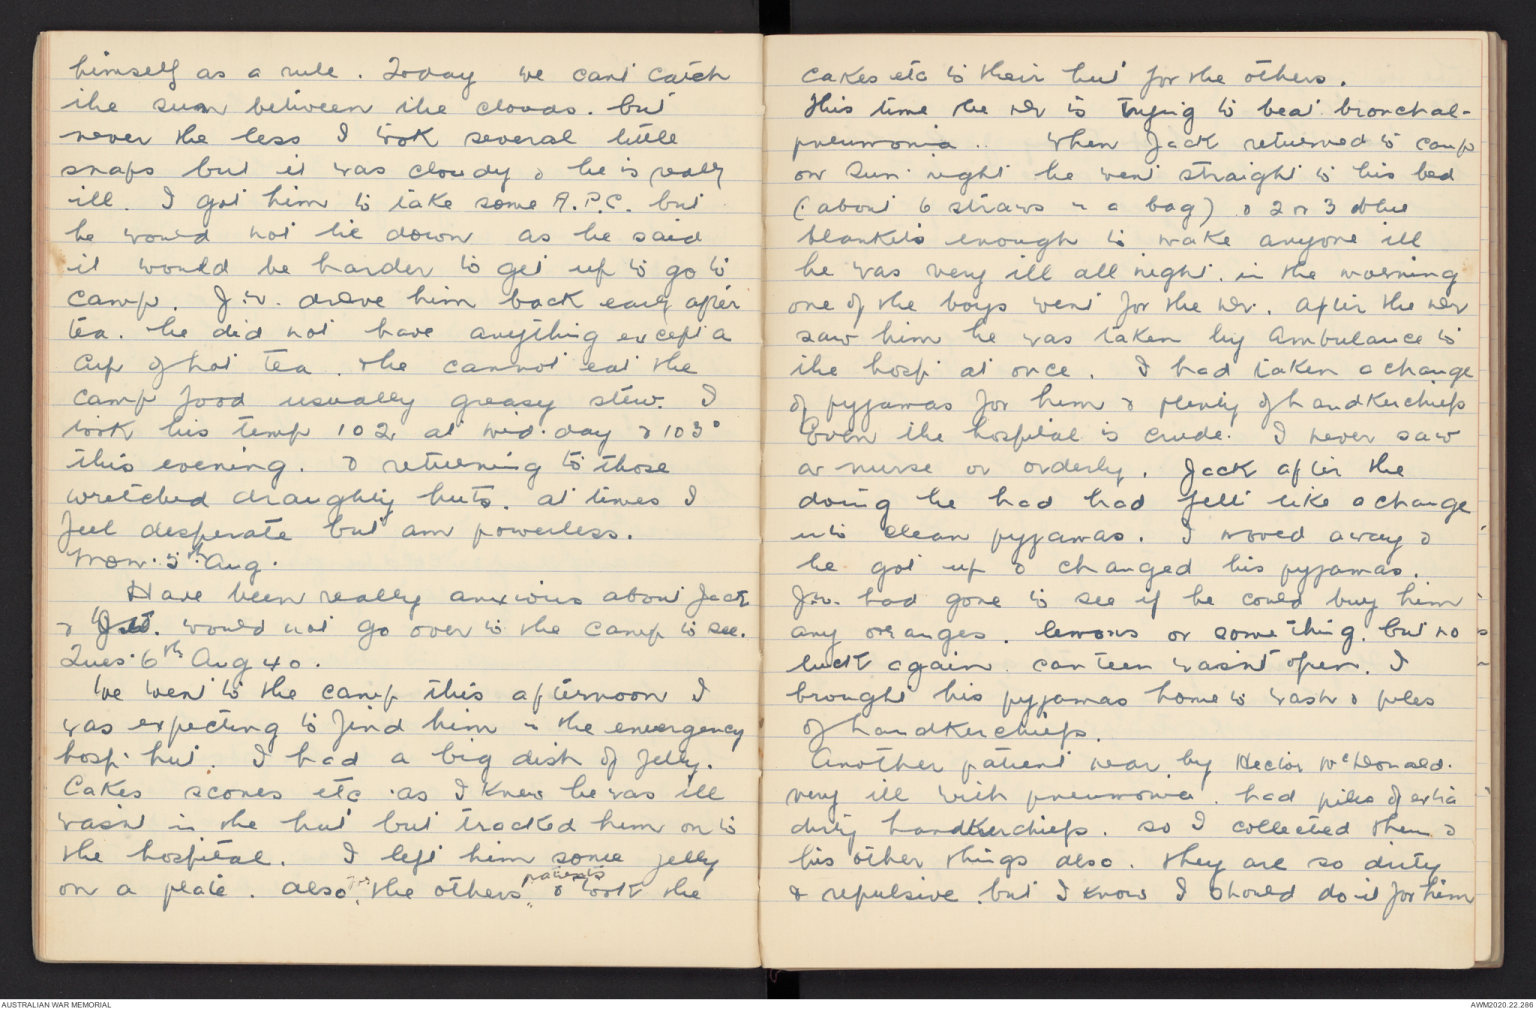 himself as a rule. Today we cant catch
the sun between the clouds. but
never the less I took several little
snaps but it was cloudy & he is really
ill. I got him to take some A.P.C. but
he would not lie down as he said
it would be harder to get up to go to
camp. J.W. drove him back early after
tea. he did not have anything except a
cup of hot tea. & he cannot eat the
camp food usually greasy stew. I
took his temp 102 at mid.day & 103°
this evening. & returning to those
wretched draughty huts. at times I
feel desperate but am powerless.
Mon. 5th Aug.
Have been really anxious about Jack
& J.W. would not go over to the camp to see.
Tues. 6th Aug 40.
We went to the camp this afternoon I
was expecting to find him in the emergency
hosp. hut. I had a big dish of jelly.
Cakes scones etc. as I knew he was ill
wasnt in the hut but tracked him on to
the hospital. I left him some jelly
on a plate. also for the others patients & took the
cakes etc to their hut for the others.
This time the Dr is trying to beat bronchal-
pneumonia.. When Jack returned to camp
on Sun. night he went straight to his bed
(about 6 straws in a bag) & 2 or 3 blue
blankets enough to make anyone ill
he was very ill all night. in the morning
one of the boys went for the Dr. after the Dr
saw him he was taken by Ambulance to
the hosp at once. I had taken a change
of pyjamas for him & plenty of handkerchiefs
Even the hospital is crude. I never saw
a nurse or orderly. Jack after the
doing he had had felt like a change
into clean pyjamas. I moved away &
he got up & changed his pyjamas.
J.W. had gone to see if he could buy him
any oranges. lemons or something. but no
luck again. canteen wasnt open. I
brought his pyjamas home to wash & piles
of handkerchiefs.
Another patient near by Hector McDonald.
very ill with pneumonia. had piles of extra
dirty handkerchiefs. so I collected them &
his other things also. they are so dirty
& repulsive. but I know I should do it for him
AUSTRALIAN WAR MEMORIAL
AWM2020.22.286